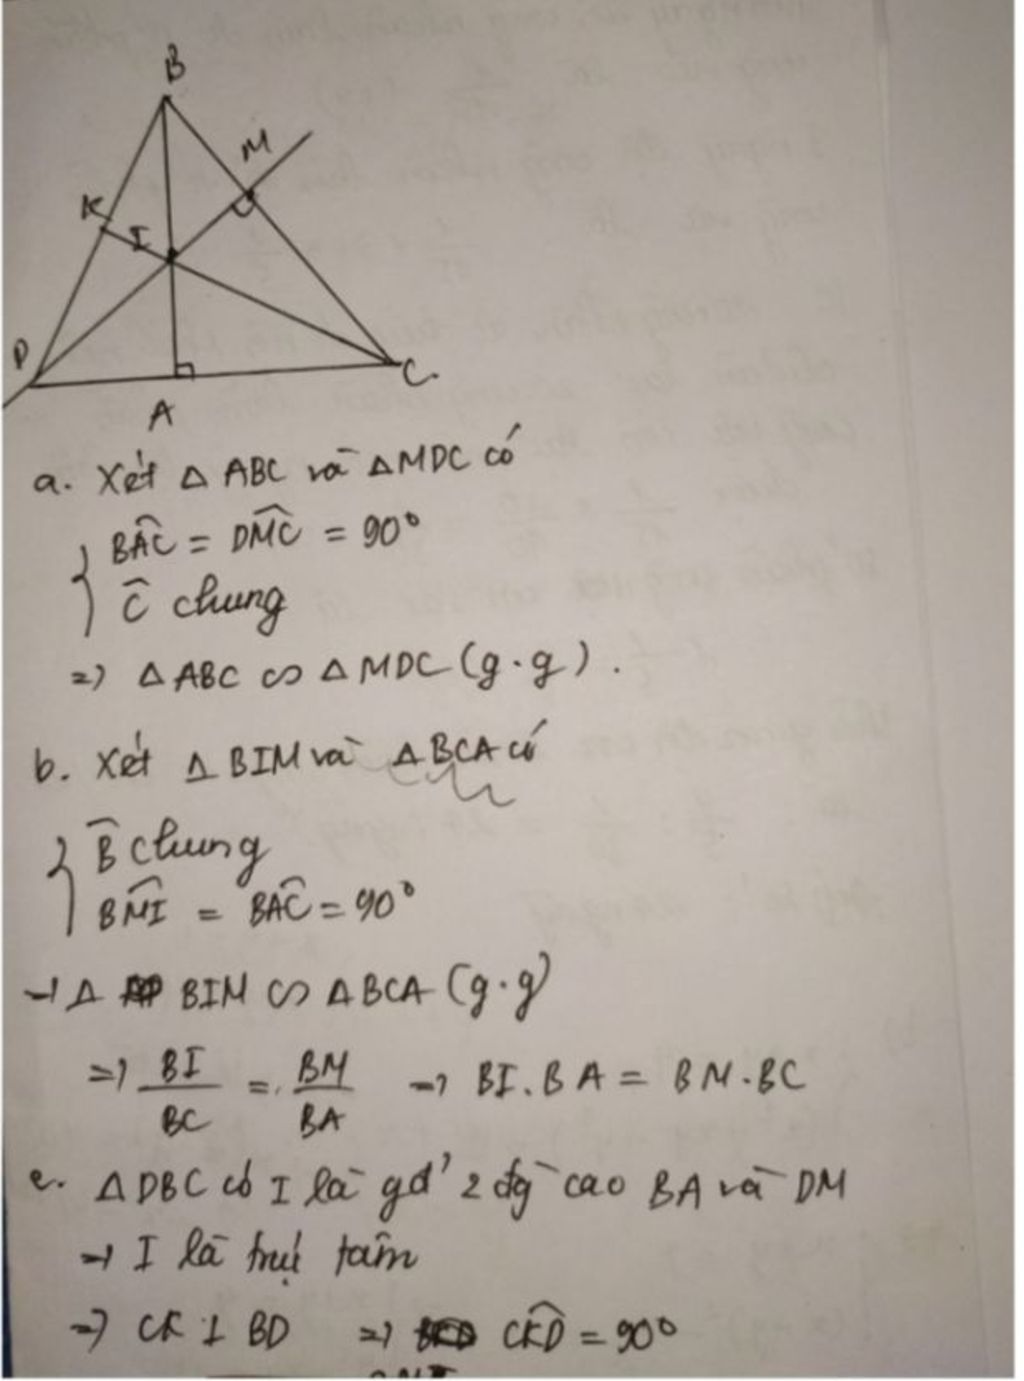 B
M
K
I
D
C.
A
a. Xét Δ ABC và ΔMDC có
{ BÂC = DM̂C = 90°
Ĉ chung
=> Δ ABC ∽ Δ MDC (g.g).
b. Xét Δ BIM và Δ BCA có
{ B̂ chung
BM̂I = BÂC = 90°
→ Δ BIM ∽ Δ BCA (g.g)
=> BI/BC = BM/BA → BI.BA = BM.BC
c. Δ DBC có I là gđ' 2 đg` cao BA và DM
→ I là trực tâm
=> CK ⊥ BD => CK̂D = 90°